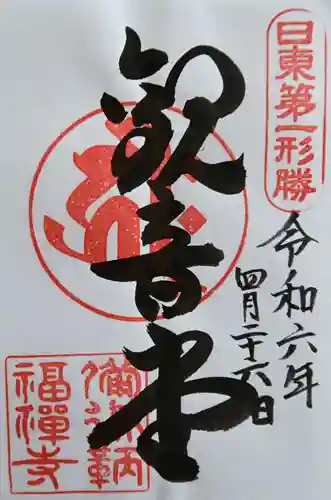 日東第一形勝
令和六年
四月二十六日
觀音堂
備後鞆
福禅寺